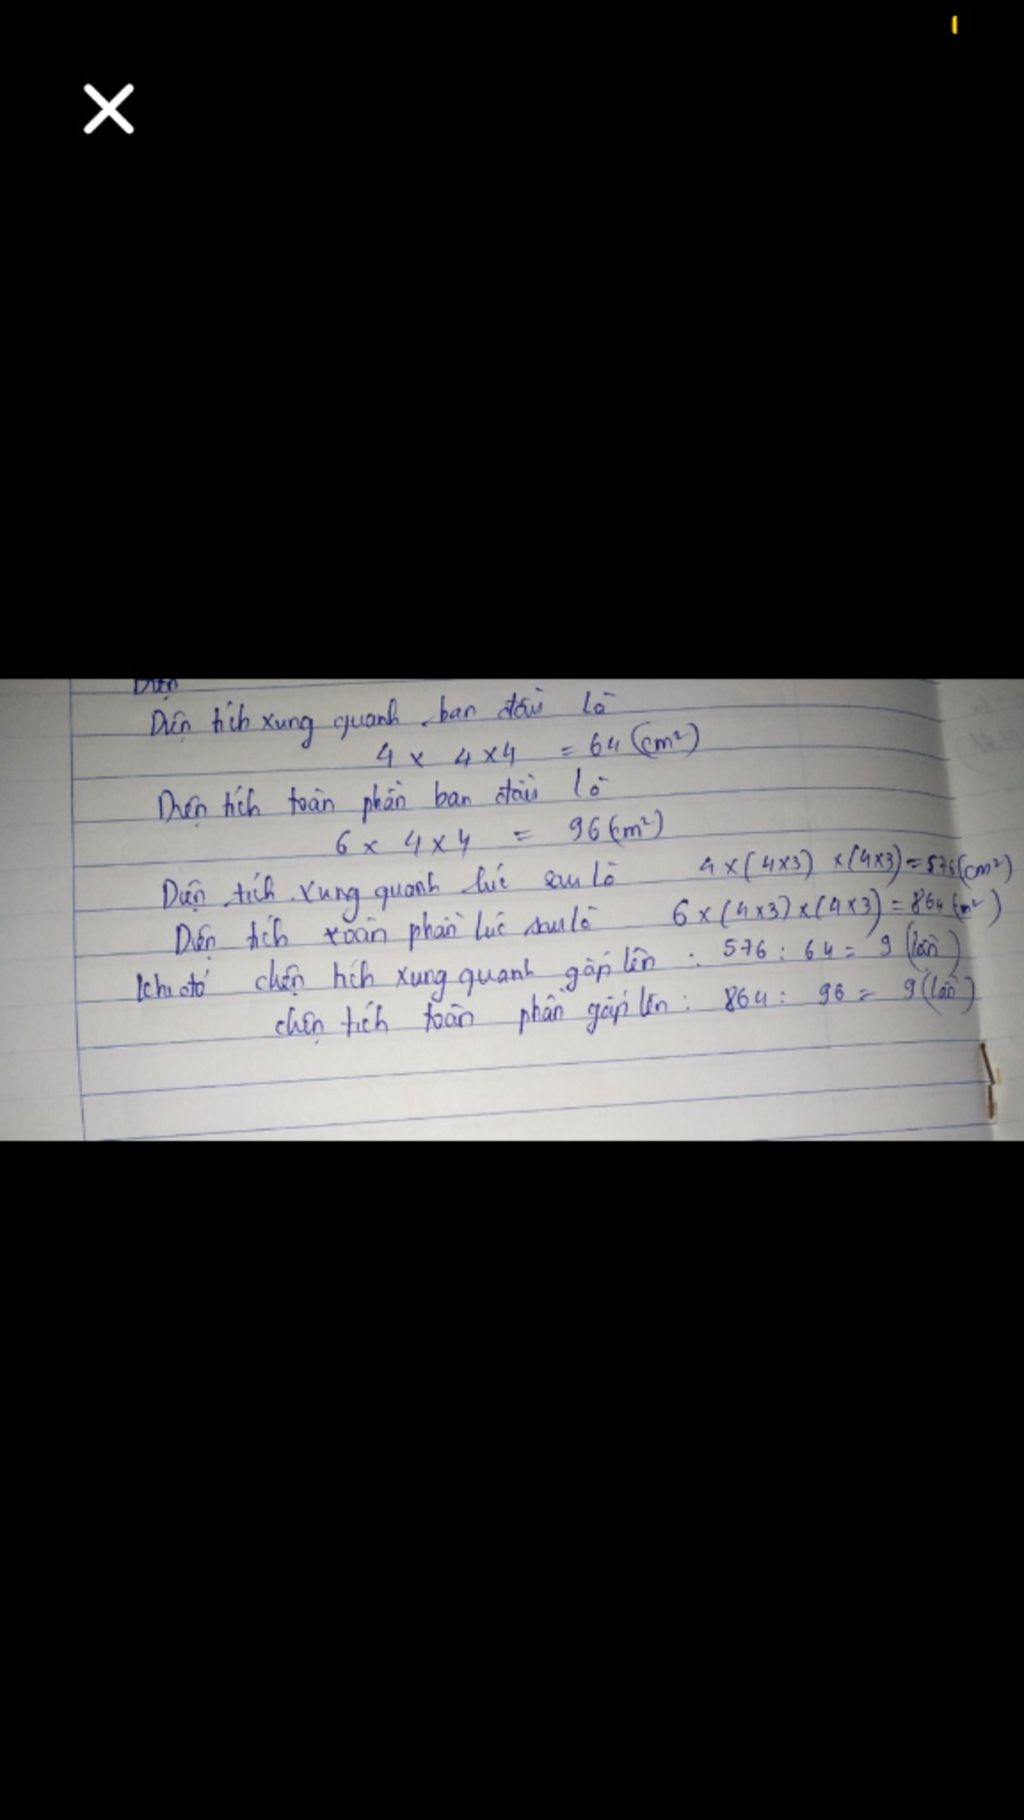 Diện
Diện tích xung quanh ban đầu là
4 x 4 x 4 = 64 (cm²)
Diện tích toàn phần ban đầu là
6 x 4 x 4 = 96 (cm²)
Diện tích xung quanh lúc sau là 4 x (4x3) x (4x3) = 576 (cm²)
Diện tích toàn phần lúc sau là 6 x (4x3) x (4x3) = 864 (cm²)
Khi đó diện tích xung quanh gấp lên : 576 : 64 = 9 (lần)
diện tích toàn phần gấp lên : 864 : 96 = 9 (lần)